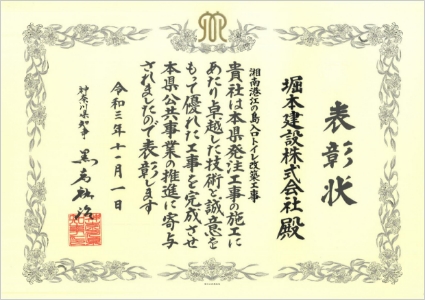 表彰状
堀本建設株式会社 殿
湘南港江の島入口トイレ改築工事
貴社は本県発注工事の施工に
あたり卓越した技術と誠意を
もって優れた工事を完成させ
本県公共事業の推進に寄与
されましたので表彰します
令和三年十一月一日
神奈川県知事 黒岩祐治